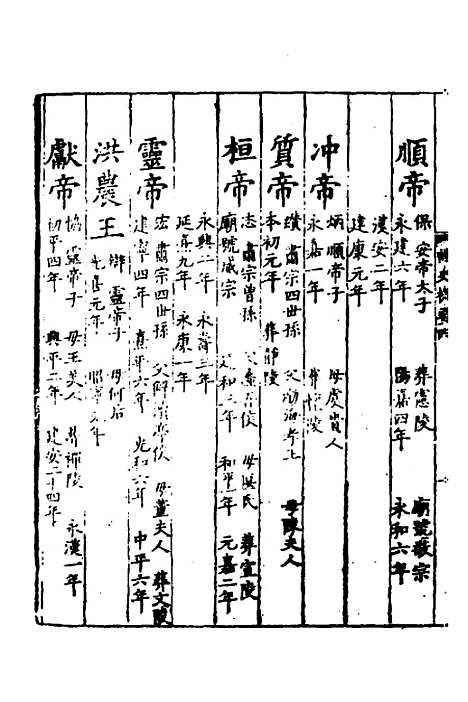 順帝
保 安帝太子 葬憲陵 廟號敬宗
永建六年 陽嘉四年 永和六年
漢安二年
建康元年
冲帝
炳 順帝子 母虞貴人
永嘉一年 葬懷陵
質帝
纘 肅宗四世孫 父勃海孝王 母陳夫人
本初元年 葬靜陵
桓帝
志 肅宗曾孫 母匽氏 葬宣陵
廟號威宗 和平一年 元嘉二年
永興二年 永壽三年
延熹九年 永康一年
靈帝
宏 肅宗四世孫 母董夫人 葬文陵
建寧四年 熹平六年 光和六年 中平六年
洪農王
辯 靈帝子 母何后
光熹元年 昭寧元年
獻帝
協 靈帝子 母王美人 葬禪陵 永漢一年
初平四年 興平二年 建安二十四年